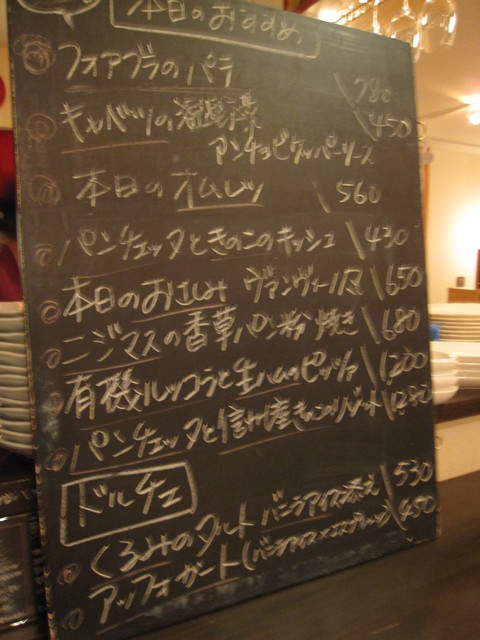 本日のおすすめ
フォアグラのパテ \780
キャベツの温製 \450
アンチョビケッパーソース
本日のオムレツ \560
パンチェッタときのこのキッシュ \430
本日のお込み ヴァンヴィーノ \650
ニジマスの香草パン粉焼き \680
有機ルッコラと生ハムのピッツァ \1,200
パンチェッタと信州産きのこのリゾット
ドルチェ
くるみのタルト バニラアイス添え \530
アッフォガート(バニラアイス×エスプレッソ) \450